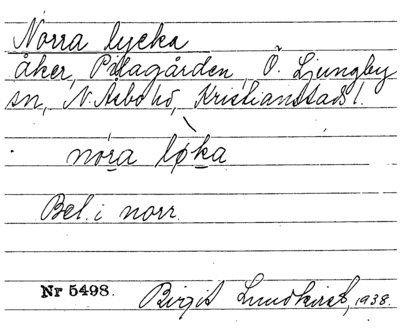 Norra lycka
Åker, Pålagården, Ö. Ljungby
sn, N. Åsbo hd, Kristianstads l.
nóra lỳka
Bel. i norr.
Nr 5498. Birgit Lundkvist, 1938.